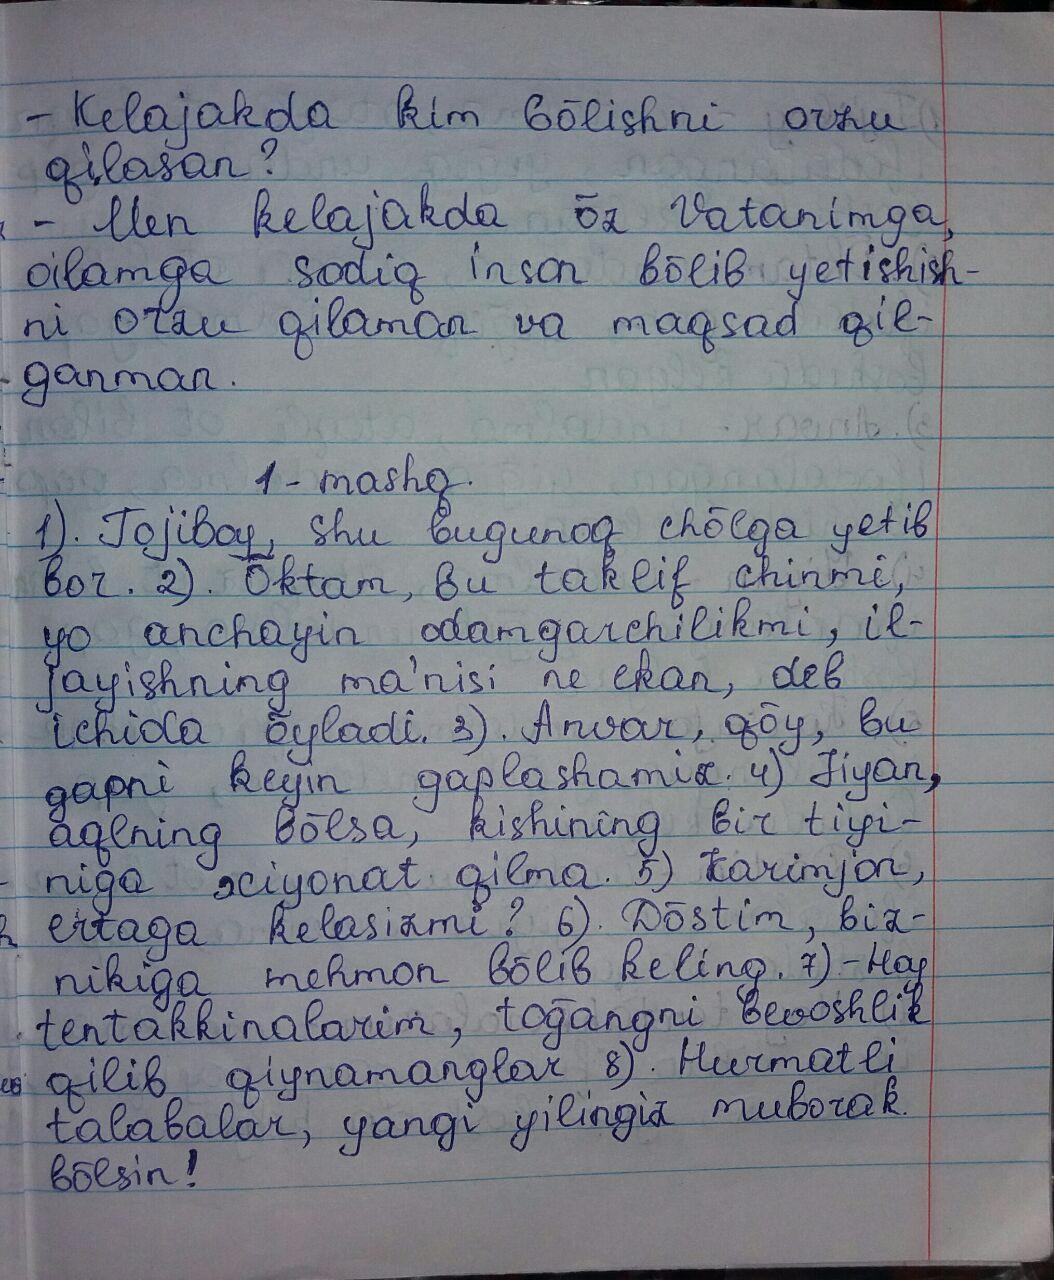 - Kelajakda kim bōlishni orzu
qilasan?
- Men kelajakda ōz Vatanimga,
oilamga sodiq inson bōlib yetishish-
ni orzu qilaman va maqsad qil-
ganman.
1-mashq.
1). Tojiboy, shu bugunoq chōlga yetib
bor. 2). Ōktam, bu taklif chinmi,
yo anchayin odamgarchilikmi, il-
jayishning ma'nisi ne ekan, deb
ichida ōyladi. 3). Anvar, qōy, bu
gapni keyin gaplashamiz. 4) Jiyan,
aqlning bōlsa, kishining bir tiyi-
niga xiyonat qilma. 5) Karimjon,
ertaga kelasizmi? 6). Dōstim, biz-
nikiga mehmon bōlib keling. 7) - Hay
tentakkinalarim, toḡangni bevoshlik
qilib qiynamanglar 8). Hurmatli
talabalar, yangi yilingiz muborak
bōlsin!